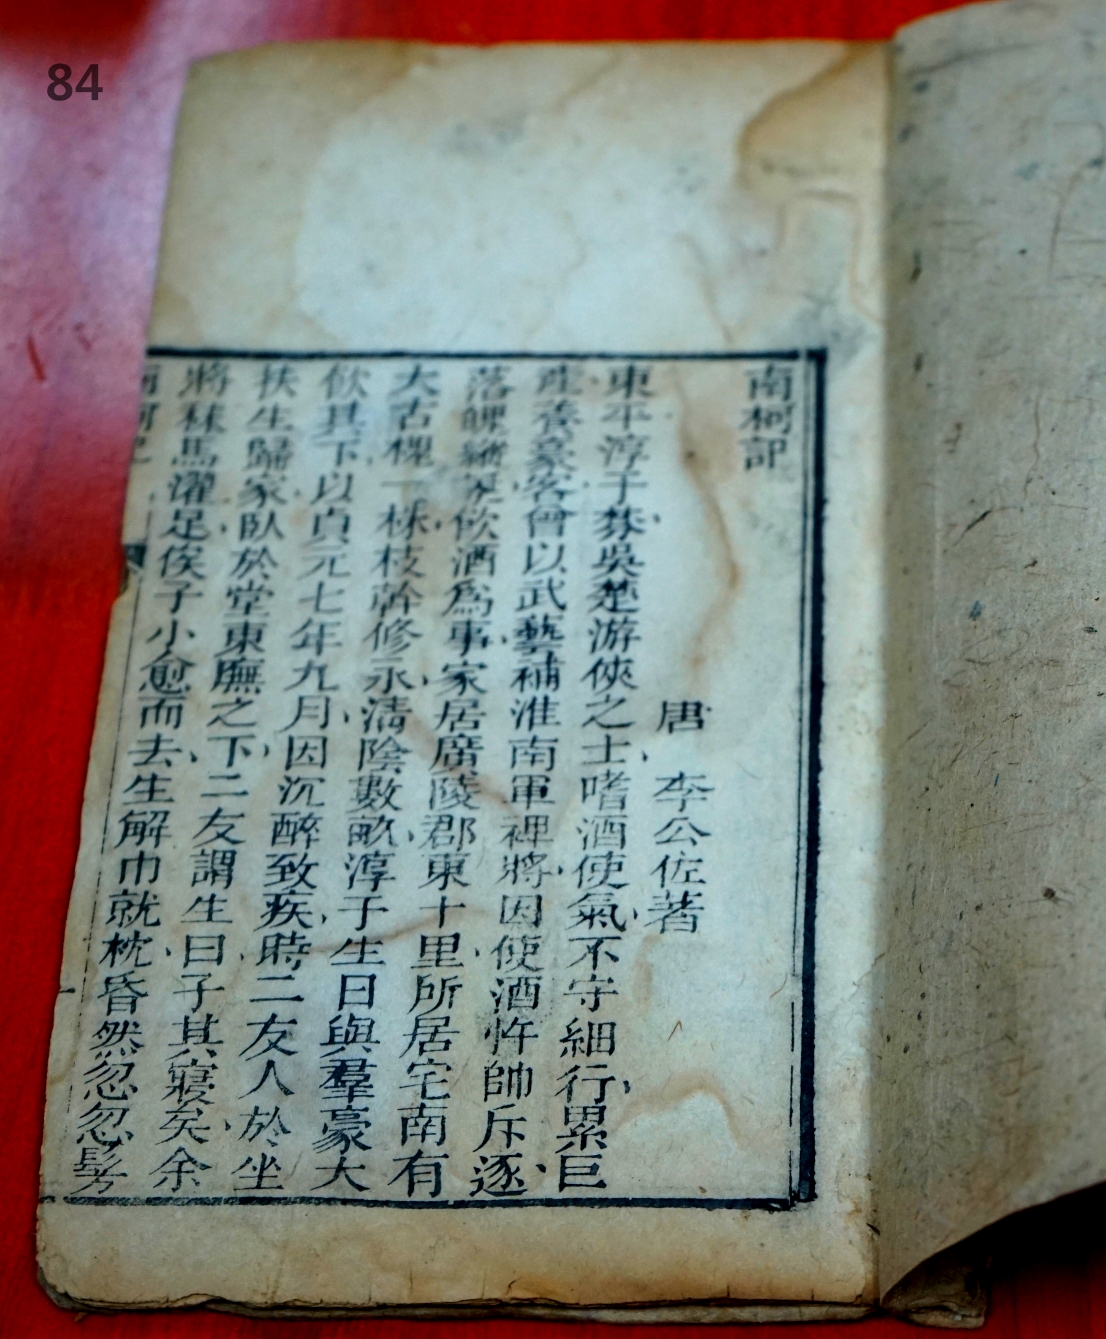 84
南柯記
唐 李公佐著
東平淳于棼吳楚游俠之士嗜酒使氣不守細行累巨
產養豪客曾以武藝補淮南軍裨將因使酒忤帥斥逐
落魄縱誕飲酒爲事家居廣陵郡東十里所居宅南有
大古槐一株枝幹修永清陰數畝淳于生日與羣豪大
飲其下以貞元七年九月因沉醉致疾時二友人於坐
扶生歸家臥於堂東廡之下二友謂生曰子其寢矣余
將秣馬濯足俟子小愈而去生解巾就枕昏然忽忽髣
南柯記
一